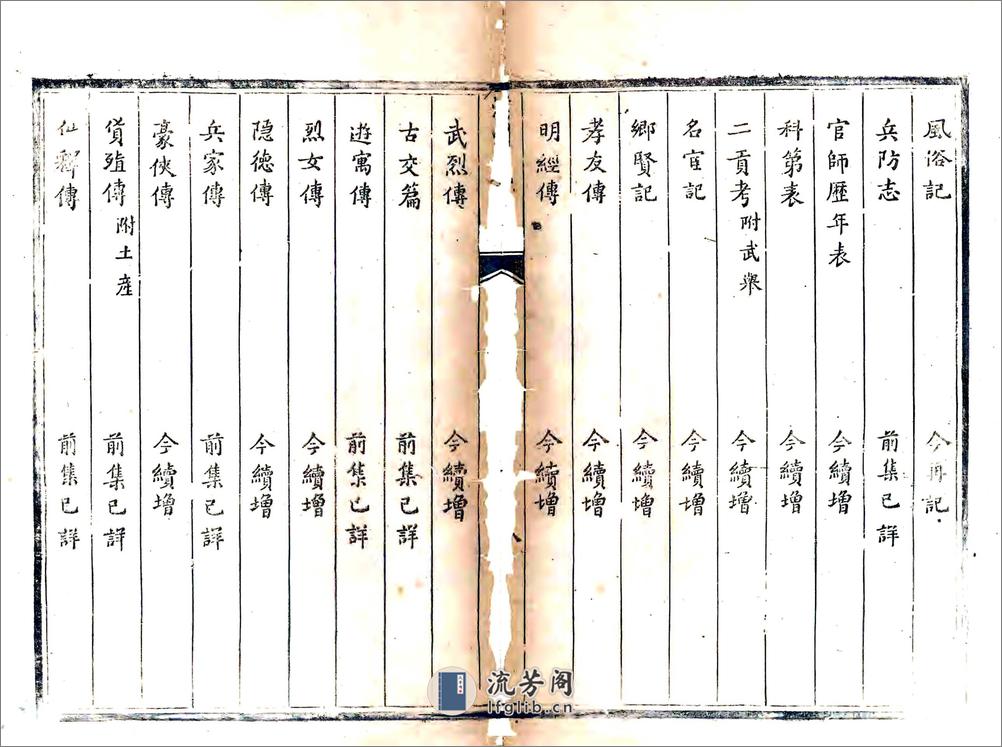 風俗記 今再記
兵防志 前集已詳
官師歷年表 今續增
科第表 今續增
二貢考 附武舉 今續增
名宦記 今續增
鄉賢記 今續增
孝友傳 今續增
明經傳 今續增
武烈傳 今續增
古文篇 前集已詳
遊寓傳 前集已詳
烈女傳 今續增
隱德傳 今續增
兵家傳 前集已詳
豪俠傳 今續增
貨殖傳 附土産 前集已詳
仙釋傳 前集已詳
流芳阁
lfglib.cn